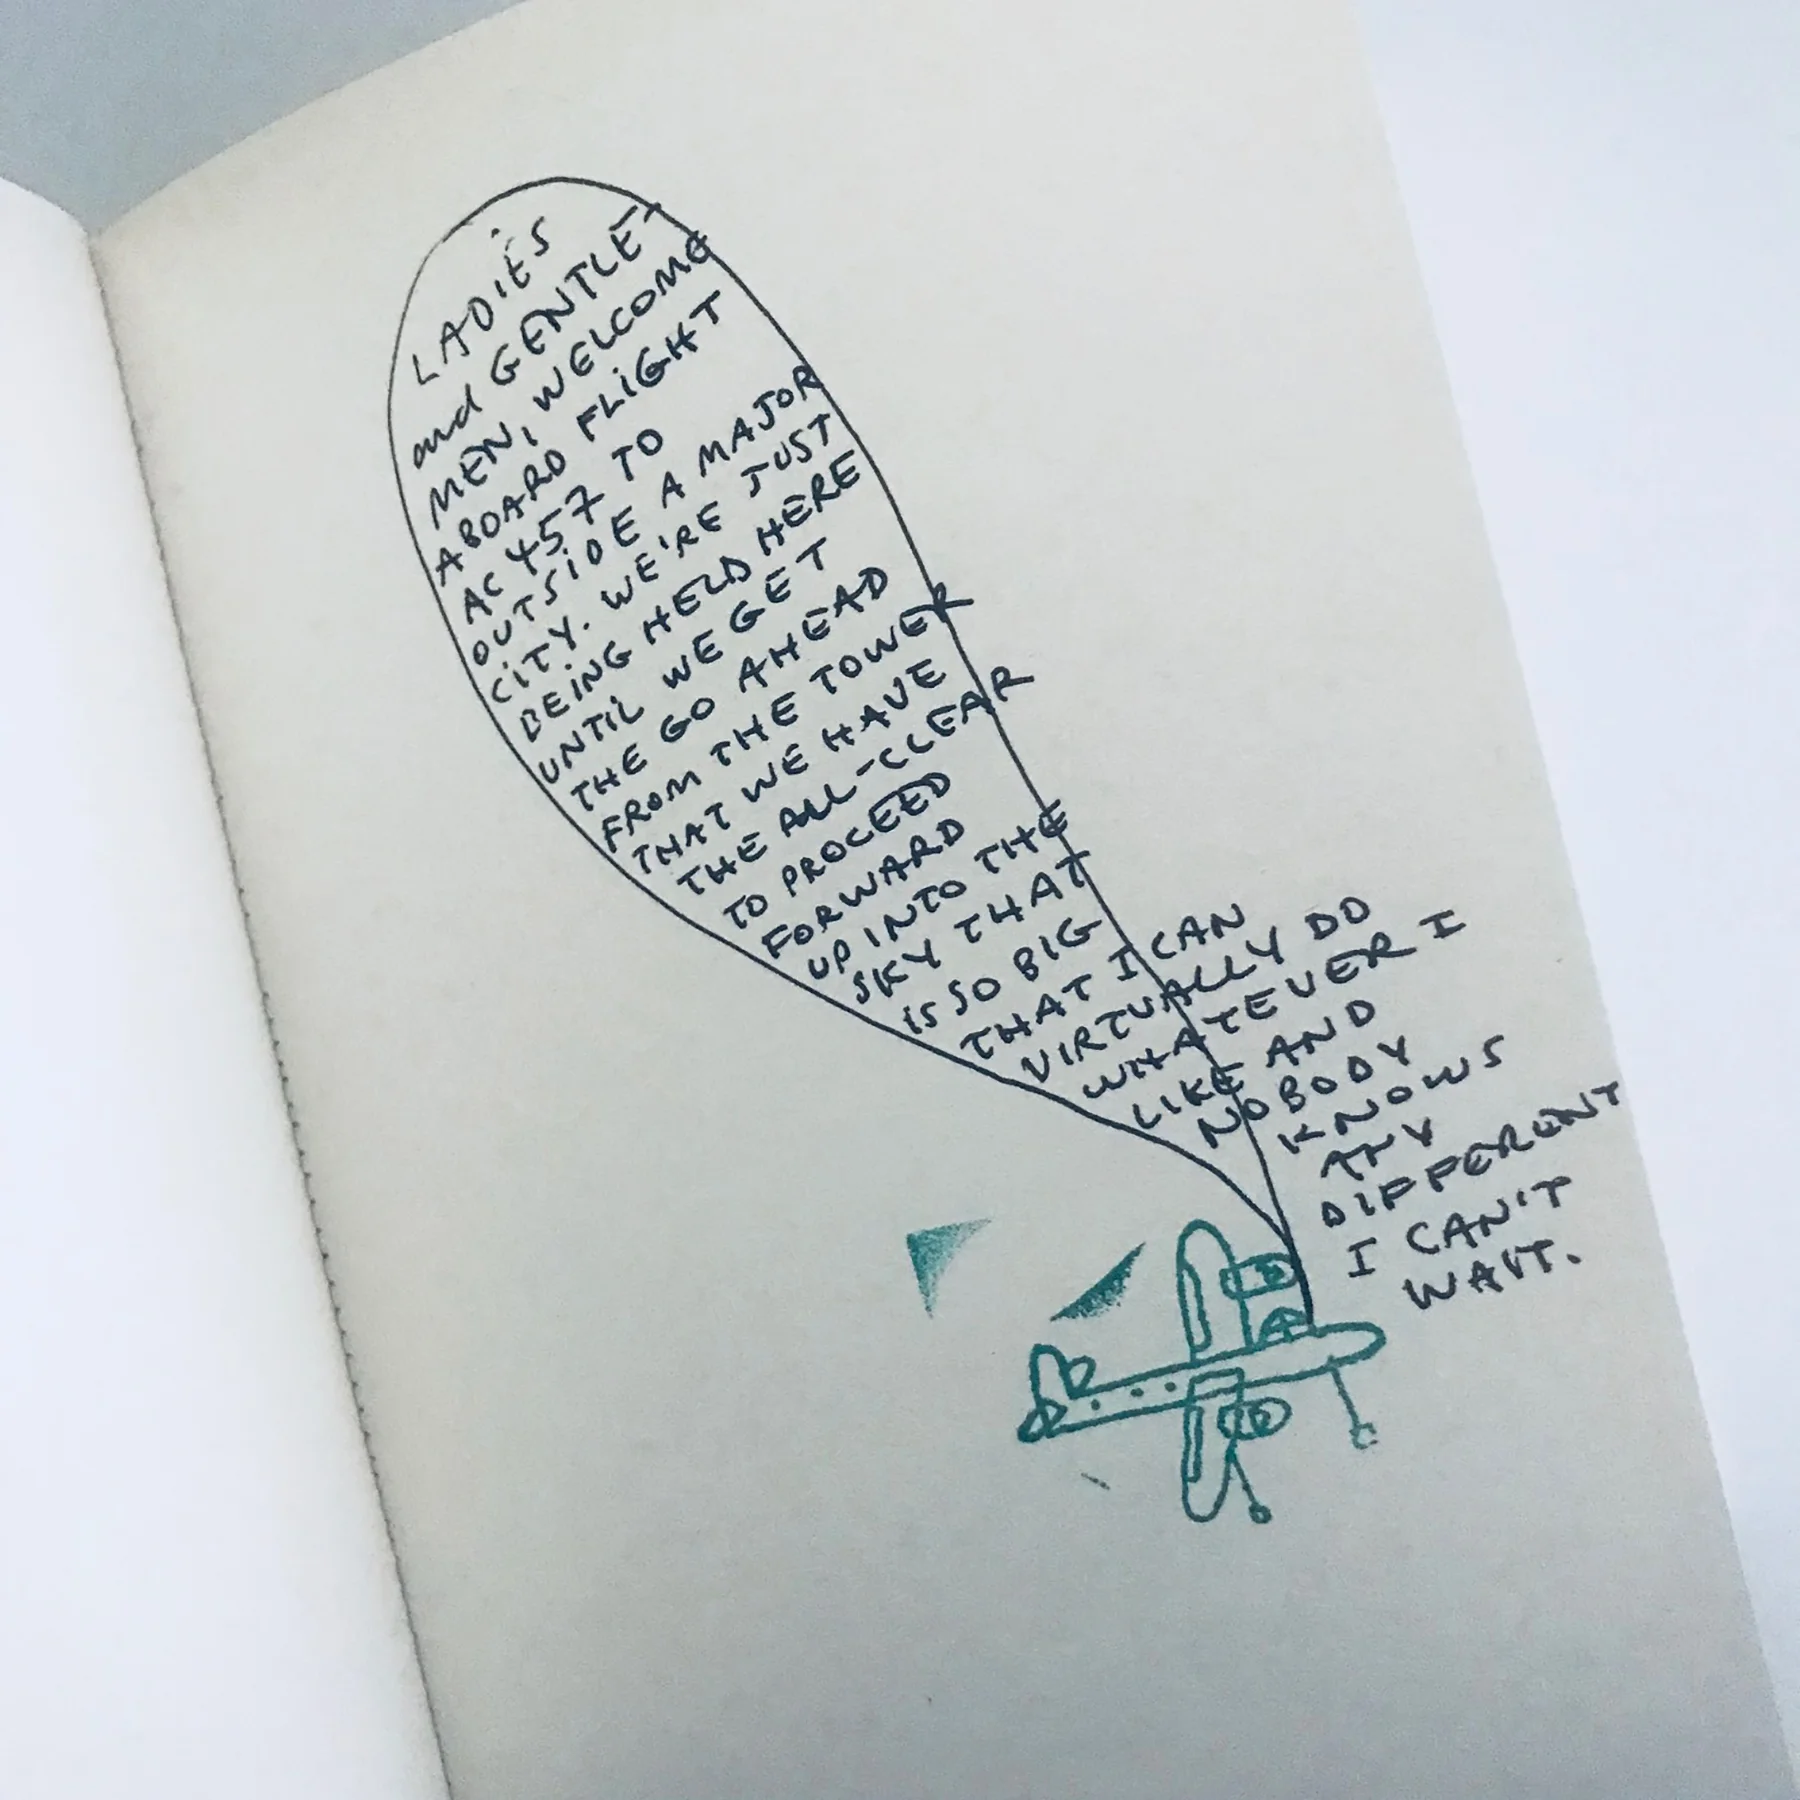 LADIES
and GENTLE-
MEN, WELCOME
ABOARD FLIGHT
AC 457 TO
OUTSIDE A MAJOR
CITY. WE'RE JUST
BEING HELD HERE
UNTIL WE GET
THE GO AHEAD
FROM THE TOWER
THAT WE HAVE
THE ALL-CLEAR
TO PROCEED
FORWARD
UP INTO THE
SKY THAT
IS SO BIG
THAT I CAN
VIRTUALLY DO
WHATEVER I
LIKE AND
NOBODY
KNOWS
ANY
DIFFERENT
I CAN'T
WAIT.